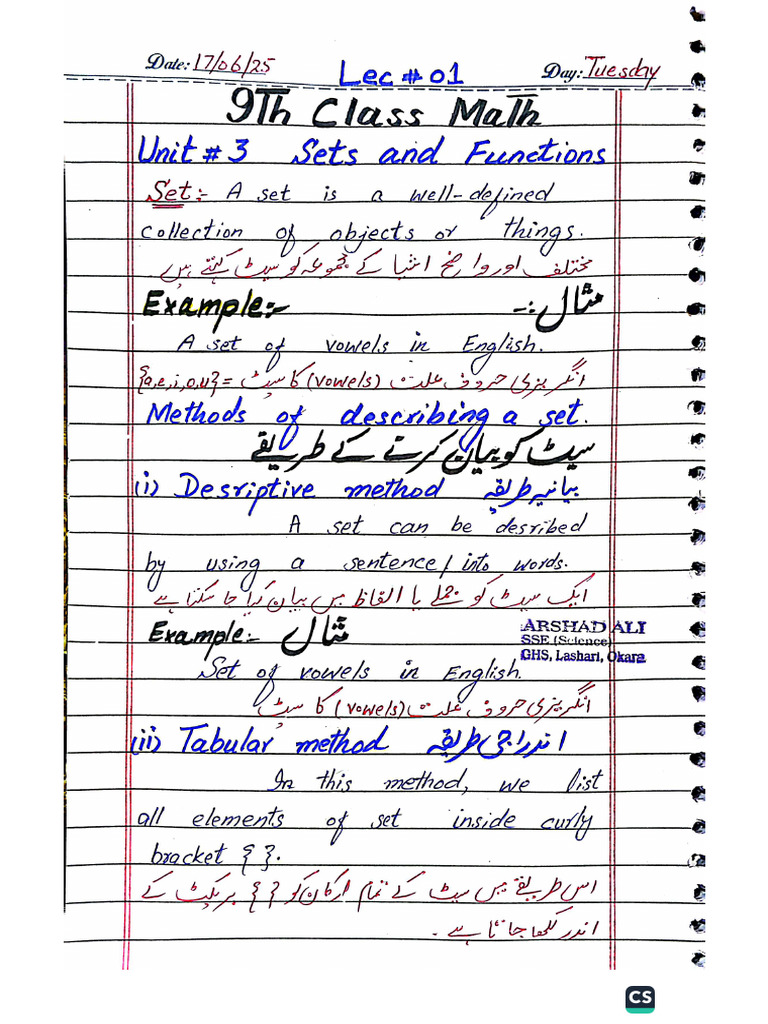 Date: 17/06/25 Lec # 01 Day: Tuesday
9Th Class Math
Unit # 3 Sets and Functions
Set:- A set is a well-defined
collection of objects or things.
مختلف اور واضح اشیا کے مجموعہ کو سیٹ کہتے ہیں۔
Example:- مثال:-
A set of vowels in English.
انگریزی حروف علت (vowels) کا سیٹ = {a,e,i,o,u}
Methods of describing a set.
سیٹ کو بیان کرنے کے طریقے
(i) Desriptive method بیانیہ طریقہ
A set can be desribed
by using a sentence/into words.
ایک سیٹ کو جملے یا الفاظ میں بیان کیا جا سکتا ہے
Example:- مثال
ARSHAD ALI
SSE (Science)
GHS, Lashari, Okara
Set of vowels in English.
انگریزی حروف علت (vowels) کا سیٹ
(ii) Tabular method اندراجی طریقہ
In this method, we list
all elements of set inside curly
bracket { }.
اس طریقے میں سیٹ کے تمام ارکان کو { } بریکٹ کے
اندر لکھا جاتا ہے۔
CS